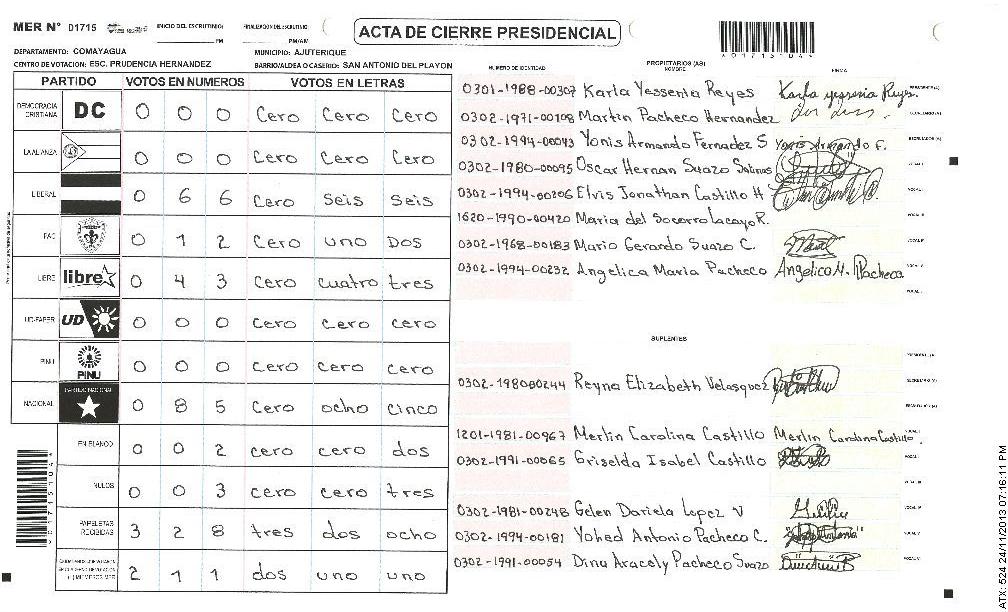 MER N° 01715 INICIO DEL ESCRUTINIO: PM FINALIZACIÓN DEL ESCRUTINIO: PM/AM ACTA DE CIERRE PRESIDENCIAL
DEPARTAMENTO: COMAYAGUA MUNICIPIO: AJUTERIQUE
CENTRO DE VOTACION: ESC. PRUDENCIA HERNANDEZ BARRIO/ALDEA O CASERIO: SAN ANTONIO DEL PLAYON
PARTIDO VOTOS EN NUMEROS VOTOS EN LETRAS
DEMOCRACIA CRISTIANA DC 0 0 0 Cero Cero Cero
LA ALIANZA 0 0 0 Cero Cero Cero
LIBERAL 0 6 6 Cero Seis Seis
FAC 0 1 2 Cero uno Dos
LIBRE libre 0 4 3 Cero cuatro tres
UD-FAPER UD 0 0 0 Cero Cero cero
PINU PINU 0 0 0 Cero Cero Cero
NACIONAL PARTIDO NACIONAL 0 8 5 Cero ocho cinco
EN BLANCO 0 0 2 cero cero dos
NULOS 0 0 3 cero cero tres
PAPELETAS RECIBIDAS 3 2 8 tres dos ocho
2 1 1 dos uno uno
NUMERO DE IDENTIDAD PROPIETARIOS (AS) NOMBRE FIRMA
0301-1988-00307 Karla Yessenia Reyes Karla yessenia Reyes PRESIDENTE (A)
0302-1971-00108 Martin Pacheco Hernandez SECRETARIO (A)
0302-1994-00043 Yonis Armando Fernadez S Yonis Armando F. ESCRUTADOR (A)
0302-1980-00095 Oscar Hernan Suazo Salinas VOCAL I
0302-1994-00206 Elvis Jonathan Castillo H VOCAL II
1620-1990-00420 Maria del Socorro Lacayo R.
0302-1968-00183 Mario Gerardo Suazo C.
0302-1994-00232 Angelica Maria Pacheco Angelica M. Pacheco
SUPLENTES
0302-198000244 Reyna Elizabeth Velasquez SECRETARIO (A)
1201-1981-00967 Merlin Carolina Castillo Merlin Carolina Castillo
0302-1991-00065 Griselda Isabel Castillo
0302-1981-00248 Gelen Dariela Lopez V
0302-1994-00181 Yohed Antonio Pacheco C.
0302-1991-00054 Dina Aracely Pacheco Suazo
ATX: 524 24/11/2013 07:16:11 PM